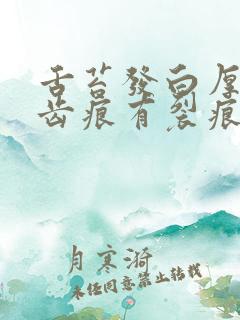 舌苔發白厚
齒痕有裂痕
月寒漪
未经同意禁止转载